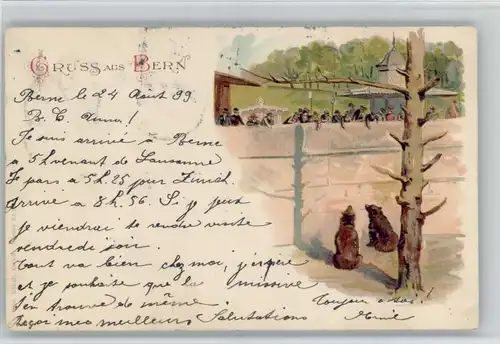 GRUSS AUS BERN
Berne le 24 Août 99
B. C. Anna!
Je suis arrivé à Berne
à 5h venant de Lausanne
Je pars à 5h.25 pour Zürich
arrivé à 8h.56. Si je peux
je viendrai te rendre visite
vendredi soir.
Tout va bien chez moi, j'espère
et je souhaite que la missive
t'en trouve de même.
Reçoi mes meilleurs Salutations
Toujour à toi!